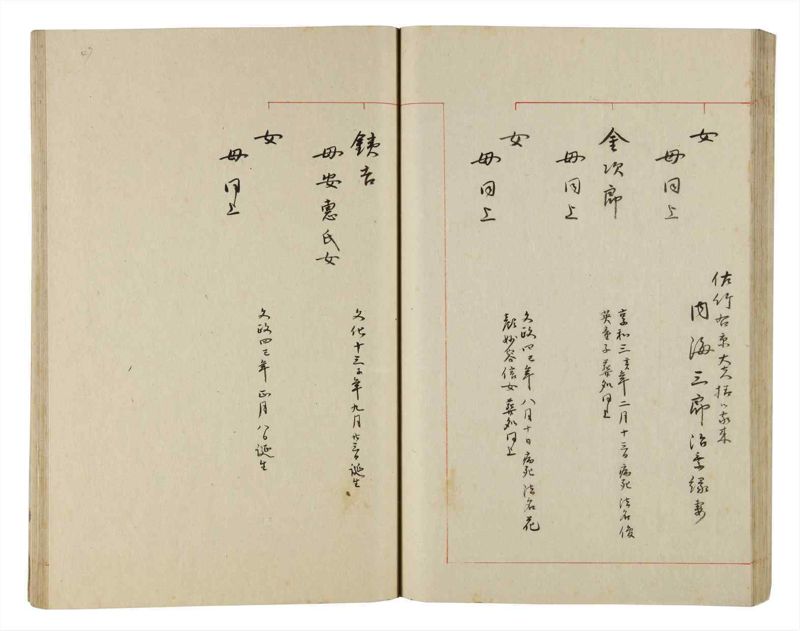 女
母同上
佐竹右京大夫
内海三郎治
縁妻
金次郎
母同上
享和三亥年二月十三日病死法名俊
英童子葬処同上
女
母同上
文政四巳年八月十日病死法名花
顔妙容信女葬処同上
銕吉
母安惠氏女
文化十三子年九月廿三日誕生
女
母同上
文政四巳年正月八日誕生